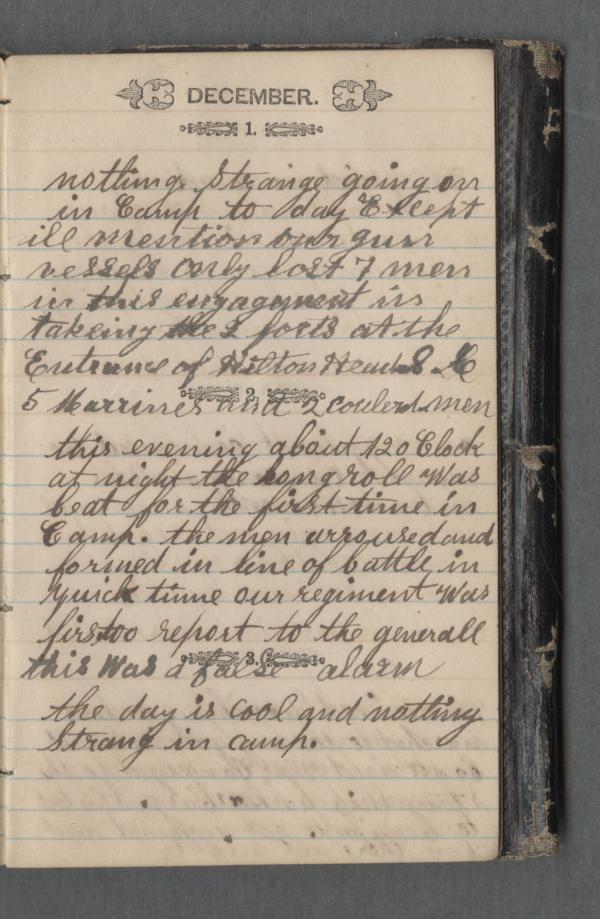 DECEMBER.
1.
nothing strange going on
in Camp to day Except
ill mention our gun
vessels only lost 7 men
in this engagement in
takeing the 2 forts at the
Entrance of Hilton Head S. C
2.
5 Marrines and 2 coulerd men
this evening about 12 o Clock
at night the long roll was
beat for the first time in
Camp. the men arroused and
formed in line of battle in
quick time our regiment was
first too report to the generall
3.
this was a false alarm
the day is cool and nothing
Strang in camp.